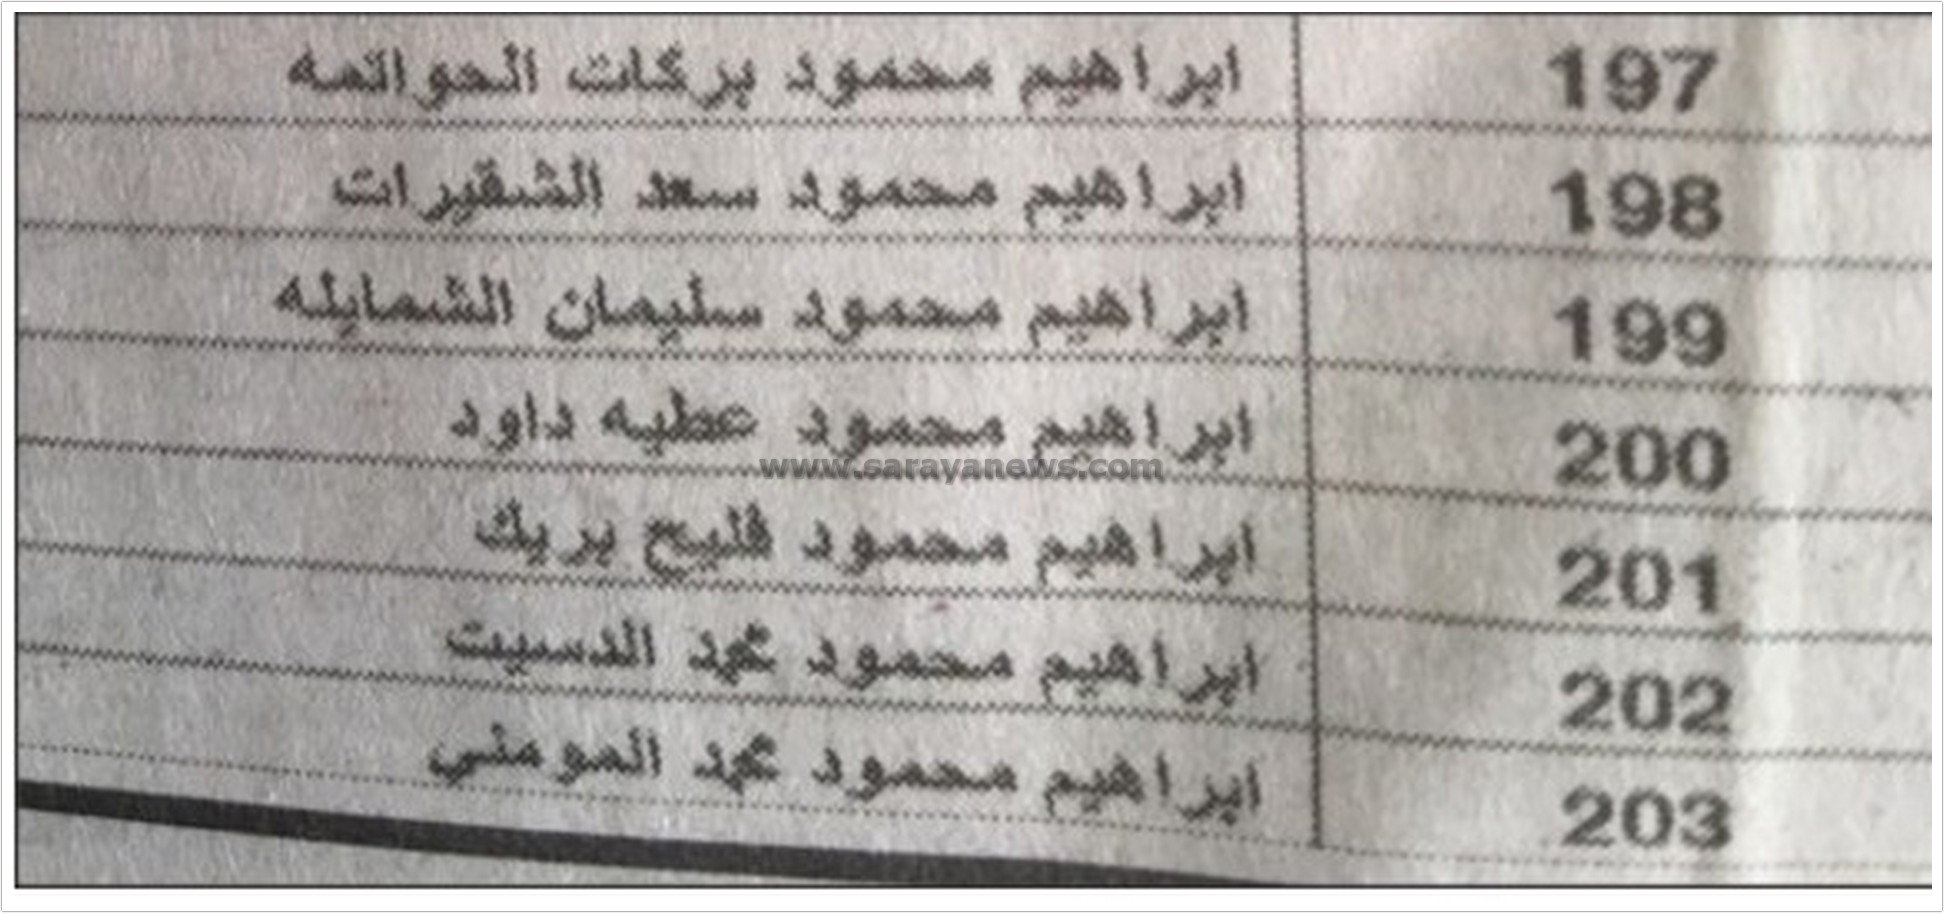 197 ابراهيم محمود بركات الحواتمه
198 ابراهيم محمود سعد الشقيرات
199 ابراهيم محمود سليمان الشمايله
200 ابراهيم محمود عطيه داود
www.sarayanews.com
201 ابراهيم محمود فليح بريك
202 ابراهيم محمود محمد الدسيت
203 ابراهيم محمود محمد المومني